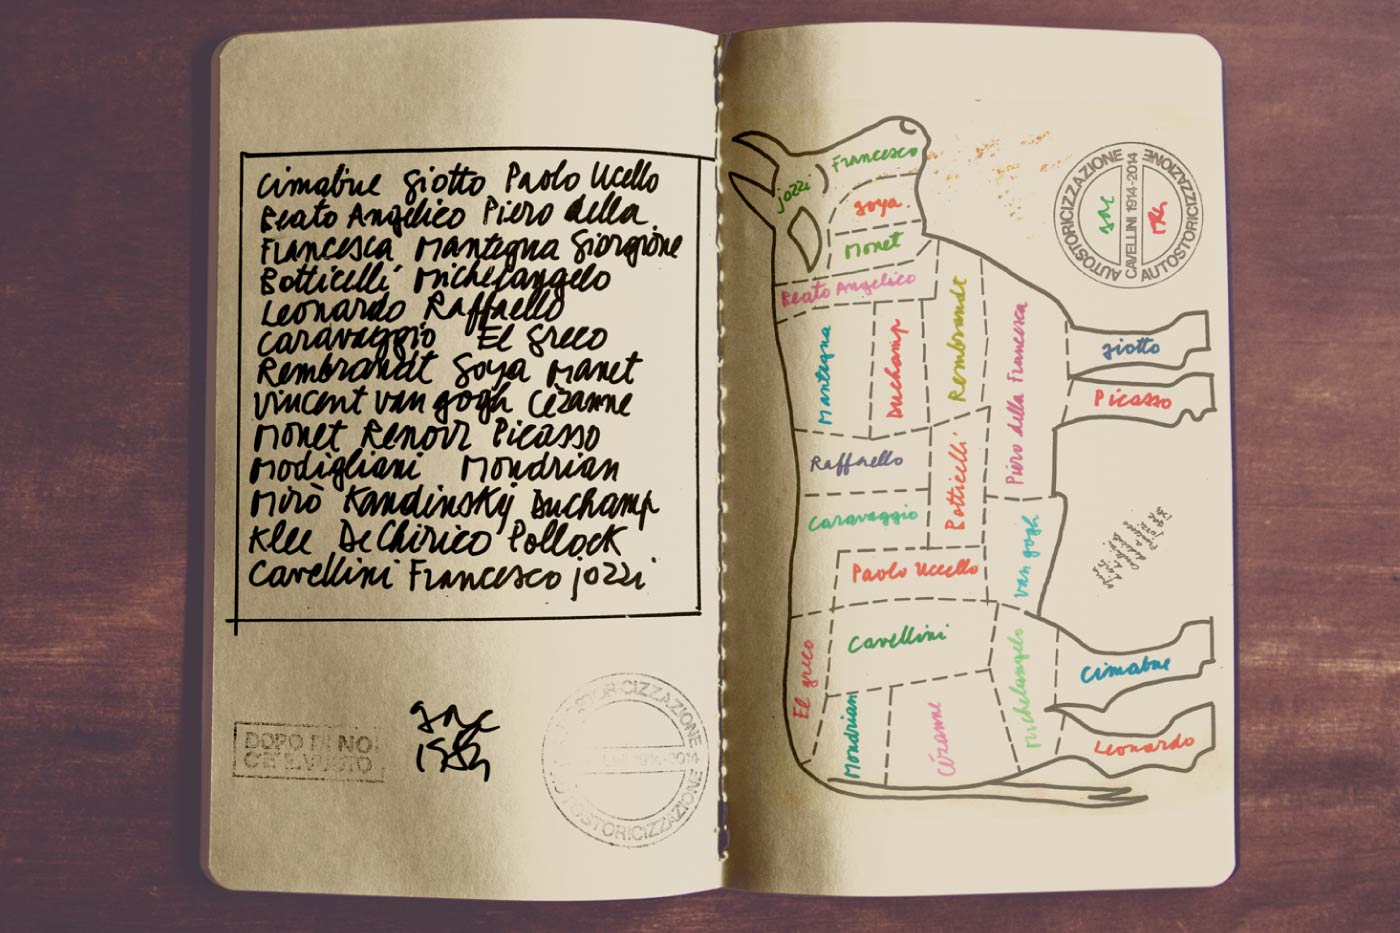 Cimabue Giotto Paolo Ucello
Beato Angelico Piero della
Francesca Mantegna Giorgione
Botticelli Michelangelo
Leonardo Raffaello
Caravaggio El Greco
Rembrandt Goya Manet
Vincent van gogh Cézanne
Monet Renoir Picasso
Modigliani Mondrian
Mirò Kandinsky Duchamp
Klee De Chirico Pollock
Cavellini Francesco jozzi
DOPO DI NOI
C'E' IL VUOTO
GAC
AUTOSTORICIZZAZIONE
AUTOSTORICIZZAZIONE
jozzi
Francesco
Goya
Monet
Beato Angelico
Mantegna
Duchamp
Rembrandt
Piero della Francesca
Giotto
Picasso
Raffaello
Botticelli
Caravaggio
Paolo Uccello
van gogh
Cavellini
El greco
Michelangelo
Cimabue
Mondrian
Cézanne
Leonardo
AUTOSTORICIZZAZIONE
CAVELLINI 1914-2014
AUTOSTORICIZZAZIONE
GAC